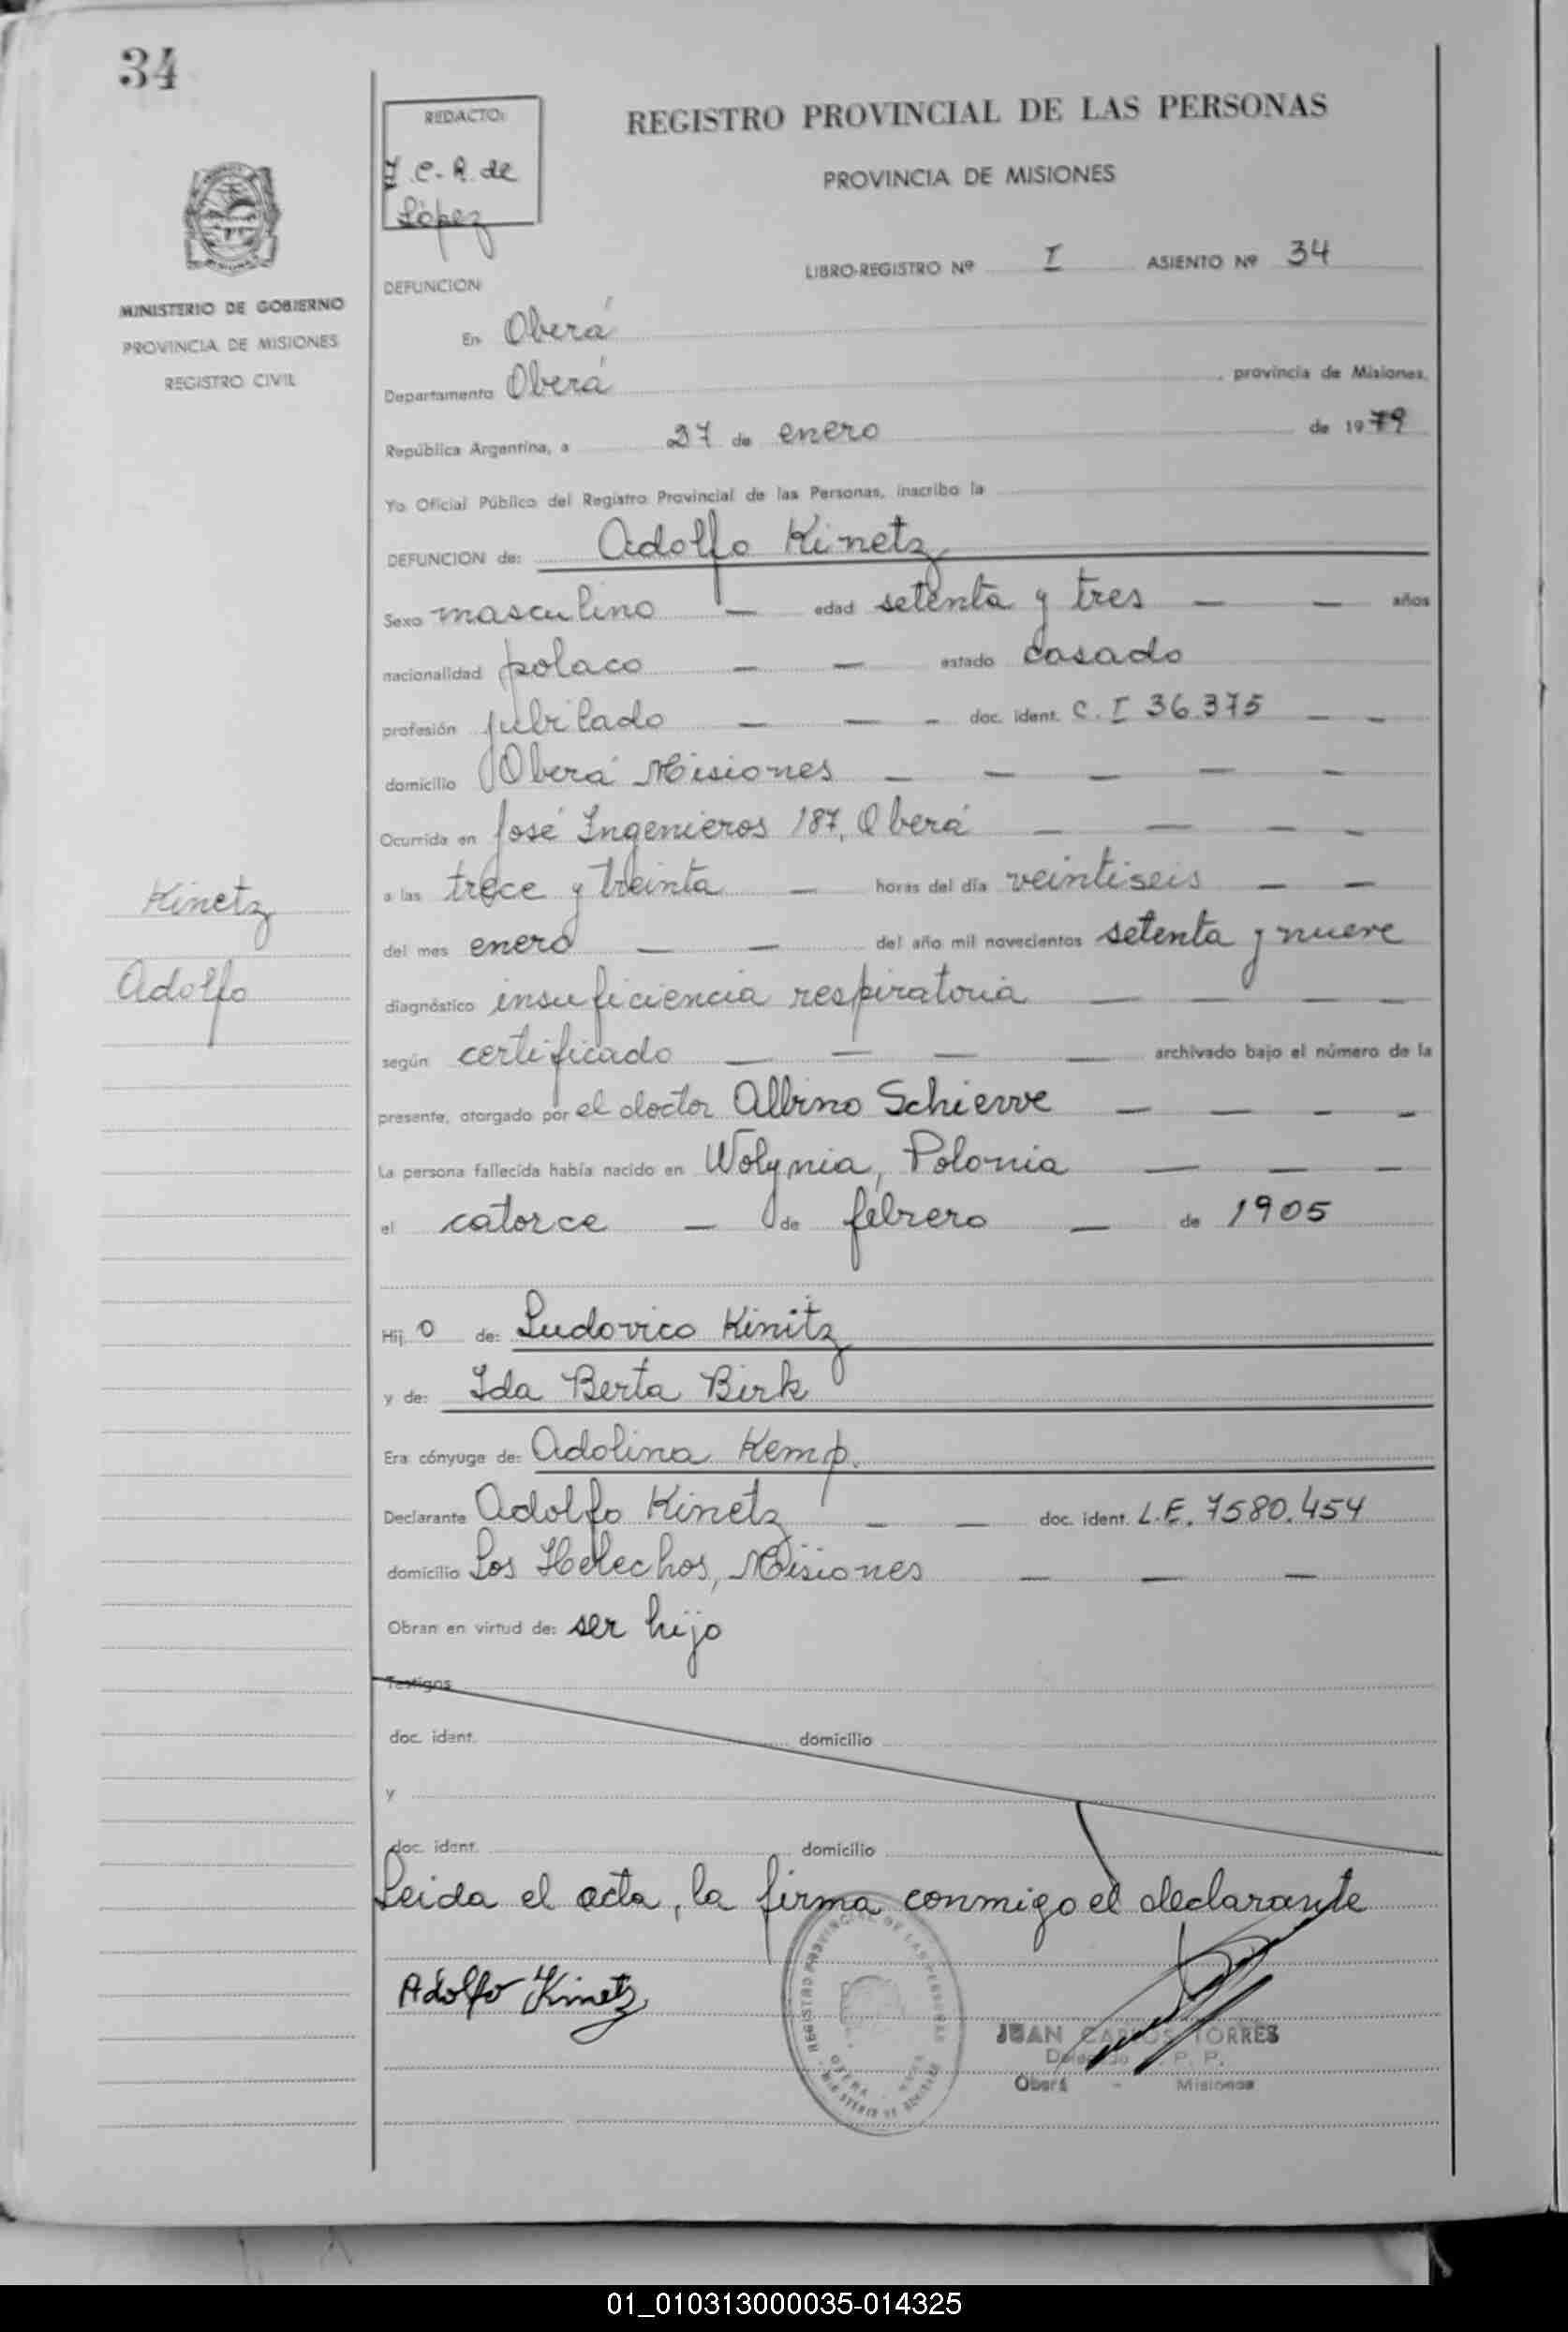 34
REDACTO:
C. R. de
López
REGISTRO PROVINCIAL DE LAS PERSONAS
PROVINCIA DE MISIONES
LIBRO-REGISTRO Nº I ASIENTO Nº 34
MINISTERIO DE GOBIERNO
PROVINCIA DE MISIONES
REGISTRO CIVIL
DEFUNCION
En Oberá
Departamento Oberá, provincia de Misiones,
República Argentina, a 27 de enero de 1979
Yo Oficial Público del Registro Provincial de las Personas, inscribo la
DEFUNCION de: Adolfo Kinetz
Sexo masculino — edad setenta y tres — — años
nacionalidad polaco — — estado casado
profesión jubilado — — - doc. ident. C. I 36.375 — -
domicilio Oberá Misiones — — — — -
Ocurrida en José Ingenieros 187, Oberá — — — -
a las trece y treinta — horas del día veintiseis — —
del mes enero — — del año mil novecientos setenta y nueve
diagnóstico insuficiencia respiratoria — — — —
según certificado — — — — archivado bajo el número de la
presente, otorgado por el doctor Albino — — - -
La persona fallecida había nacido en Wolynia, Polonia — — —
el catorce — de febrero — de 1905
Hij o de: Ludovico Kinitz
y de: Ida Berta Birk
Era cónyuge de: Adolina Kemp.
Declarante Adolfo Kinetz — — doc. ident. L.E. 7580.454
domicilio Los Helechos, Misiones — — —
Obran en virtud de: ser hijo
Testigos
doc. ident. domicilio
y
doc. ident. domicilio
Leida el acta, la firma conmigo el declarante
Kinetz
Adolfo
Adolfo Kinetz
REGISTRO PROVINCIAL DE LAS PERSONAS
JUAN CARLOS TORRES
Delegado R. P. P.
Oberá - Misiones
01_010313000035-014325